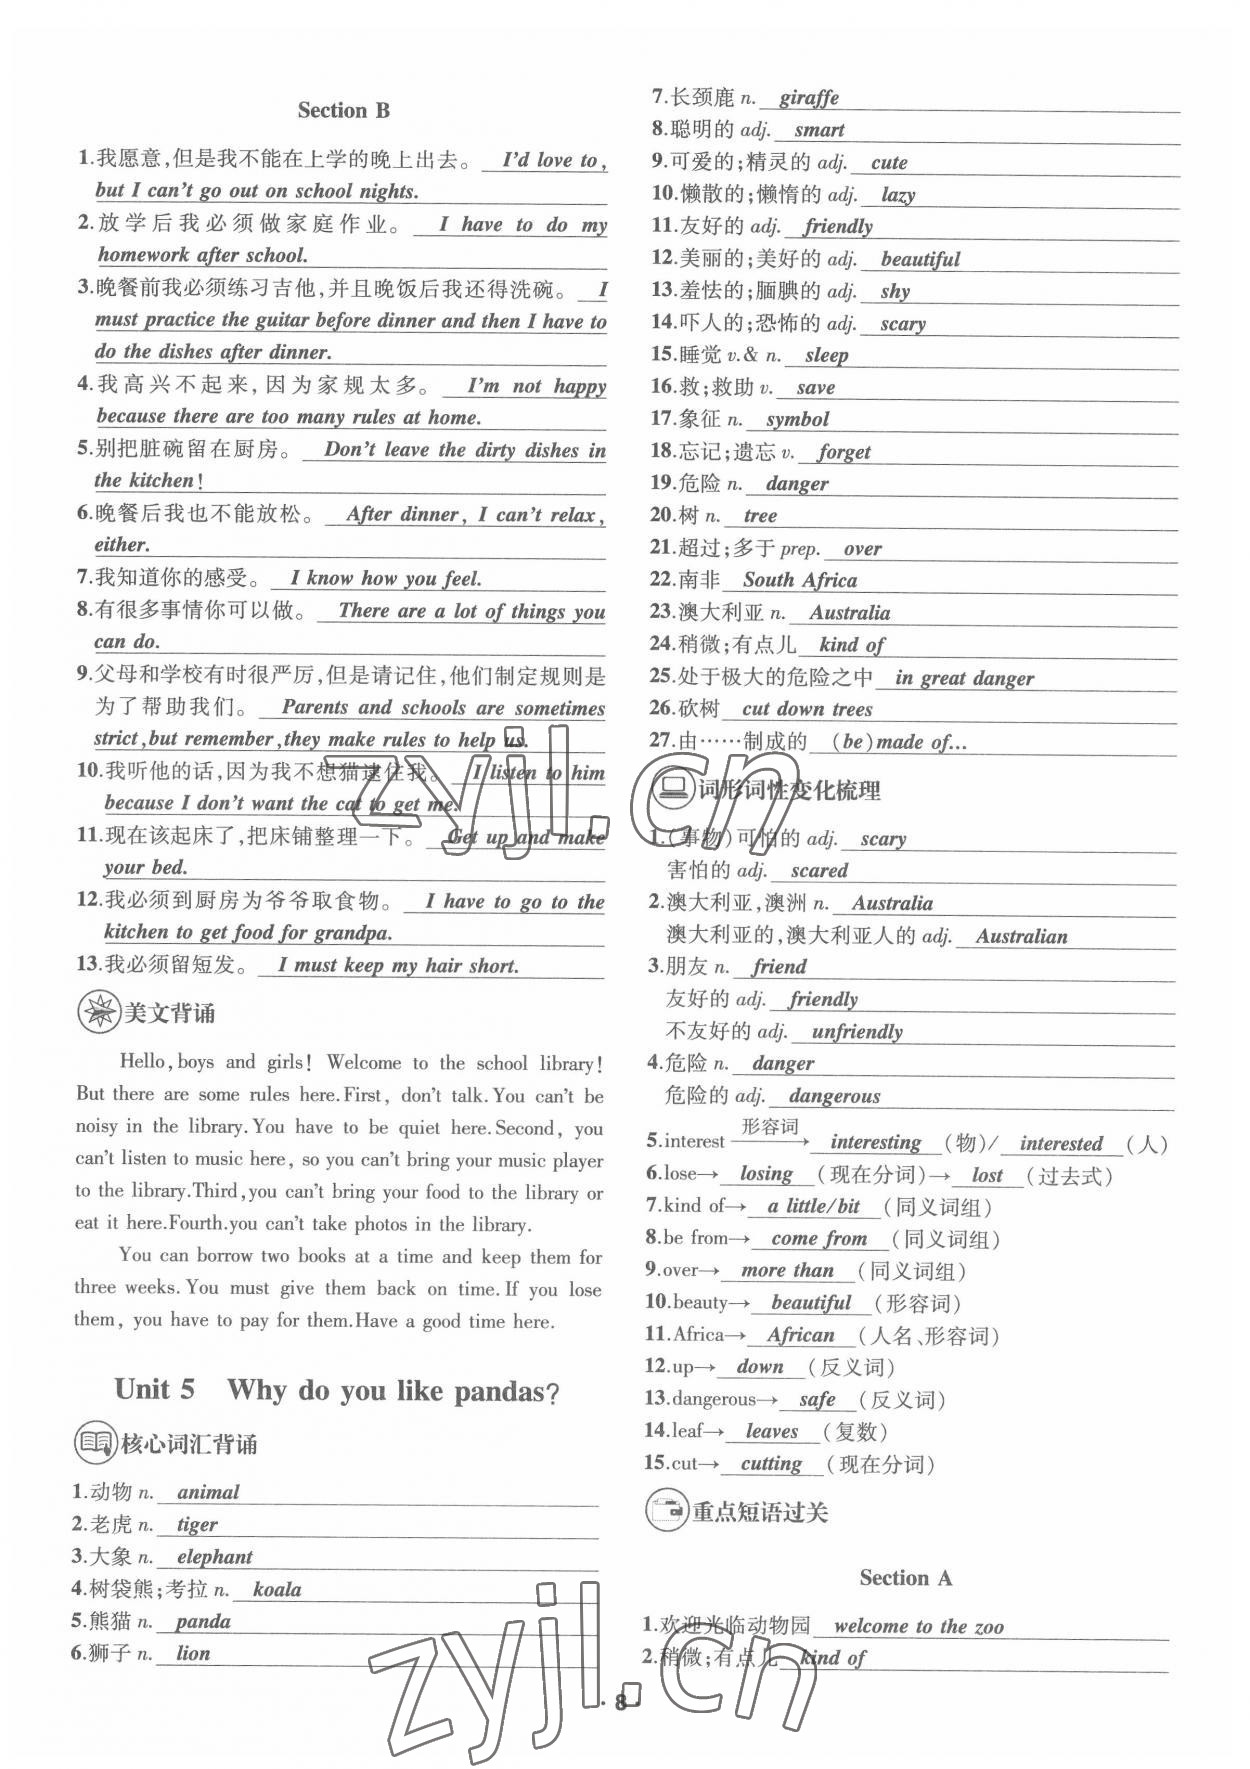 Section B
1.我愿意,但是我不能在上学的晚上出去。 I'd love to,
but I can't go out on school nights.
2.放学后我必须做家庭作业。 I have to do my
homework after school.
3.晚餐前我必须练习吉他,并且晚饭后我还得洗碗。 I
must practice the guitar before dinner and then I have to
do the dishes after dinner.
4.我高兴不起来,因为家规太多。 I'm not happy
because there are too many rules at home.
5.别把脏碗留在厨房。 Don't leave the dirty dishes in
the kitchen!
6.晚餐后我也不能放松。 After dinner, I can't relax,
either.
7.我知道你的感受。 I know how you feel.
8.有很多事情你可以做。 There are a lot of things you
can do.
9.父母和学校有时很严厉,但是请记住,他们制定规则是
为了帮助我们。 Parents and schools are sometimes
strict,but remember,they make rules to help us.
10.我听他的话,因为我不想猫逮住我。 I listen to him
because I don't want the cat to get me.
11.现在该起床了,把床铺整理一下。 Get up and make
your bed.
12.我必须到厨房为爷爷取食物。 I have to go to the
kitchen to get food for grandpa.
13.我必须留短发。 I must keep my hair short.
美文背诵
Hello,boys and girls! Welcome to the school library!
But there are some rules here.First, don't talk.You can't be
noisy in the library.You have to be quiet here.Second, you
can't listen to music here, so you can't bring your music player
to the library.Third,you can't bring your food to the library or
eat it here.Fourth.you can't take photos in the library.
You can borrow two books at a time and keep them for
three weeks.You must give them back on time.If you lose
them, you have to pay for them.Have a good time here.
Unit 5 Why do you like pandas?
核心词汇背诵
1.动物 n. animal
2.老虎 n. tiger
3.大象 n. elephant
4.树袋熊;考拉 n. koala
5.熊猫 n. panda
6.狮子 n. lion
7.长颈鹿 n. giraffe
8.聪明的 adj. smart
9.可爱的;精灵的 adj. cute
10.懒散的;懒惰的 adj. lazy
11.友好的 adj. friendly
12.美丽的;美好的 adj. beautiful
13.羞怯的;腼腆的 adj. shy
14.吓人的;恐怖的 adj. scary
15.睡觉 v.& n. sleep
16.救;救助 v. save
17.象征 n. symbol
18.忘记;遗忘 v. forget
19.危险 n. danger
20.树 n. tree
21.超过;多于 prep. over
22.南非 South Africa
23.澳大利亚 n. Australia
24.稍微;有点儿 kind of
25.处于极大的危险之中 in great danger
26.砍树 cut down trees
27.由……制成的 (be)made of...
词形词性变化梳理
1.(事物)可怕的 adj. scary
害怕的 adj. scared
2.澳大利亚,澳洲 n. Australia
澳大利亚的,澳大利亚人的 adj. Australian
3.朋友 n. friend
友好的 adj. friendly
不友好的 adj. unfriendly
4.危险 n. danger
危险的 adj. dangerous
5.interest 形容词→ interesting (物)/ interested (人)
6.lose→ losing (现在分词)→ lost (过去式)
7.kind of→ a little/bit (同义词组)
8.be from→ come from (同义词组)
9.over→ more than (同义词组)
10.beauty→ beautiful (形容词)
11.Africa→ African (人名、形容词)
12.up→ down (反义词)
13.dangerous→ safe (反义词)
14.leaf→ leaves (复数)
15.cut→ cutting (现在分词)
重点短语过关
Section A
1.欢迎光临动物园 welcome to the zoo
2.稍微;有点儿 kind of
· 8 ·
zyjl.cn
zyjl.cn